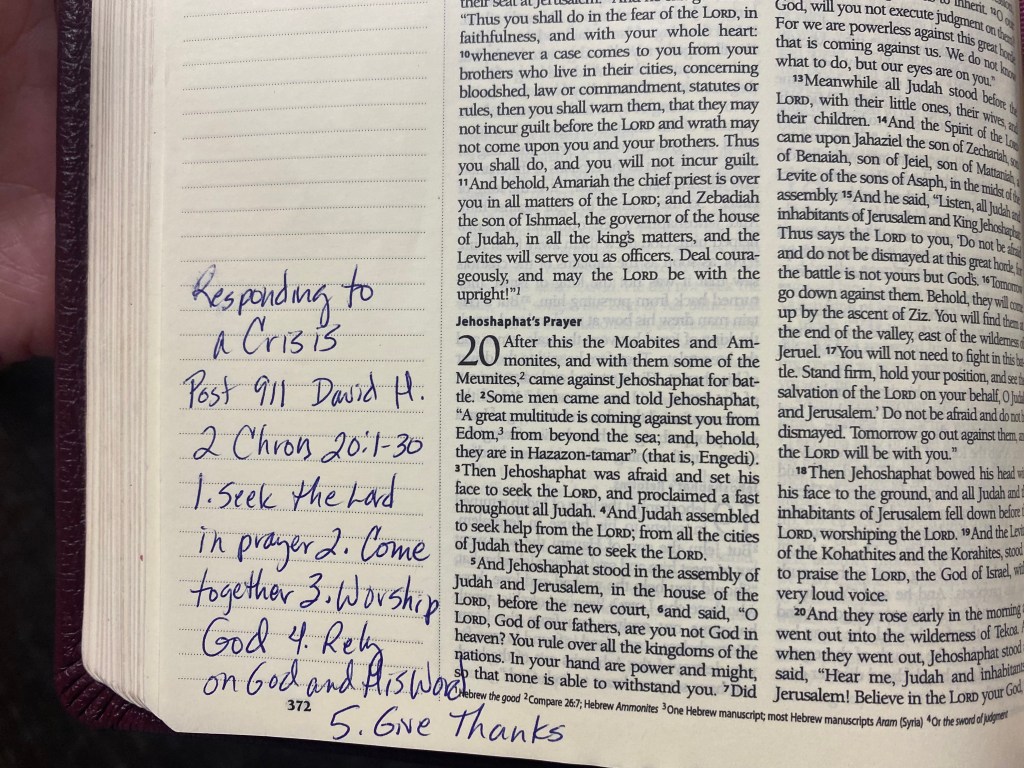 Responding to
a Crisis
Post 911 David H.
2 Chron 20:1-30
1. Seek the Lord
in prayer 2. Come
together 3. Worship
God 4. Rely
on God and His Word
5. Give Thanks
372
their seat at Jerusalem.
“Thus you shall do in the fear of the LORD, in
faithfulness, and with your whole heart:
10whenever a case comes to you from your
brothers who live in their cities, concerning
bloodshed, law or commandment, statutes or
rules, then you shall warn them, that they may
not incur guilt before the LORD and wrath may
not come upon you and your brothers. Thus
you shall do, and you will not incur guilt.
11And behold, Amariah the chief priest is over
you in all matters of the LORD; and Zebadiah
the son of Ishmael, the governor of the house
of Judah, in all the king's matters, and the
Levites will serve you as officers. Deal coura-
geously, and may the LORD be with the
upright!”1
Jehoshaphat's Prayer
20 After this the Moabites and Am-
monites, and with them some of the
Meunites,2 came against Jehoshaphat for bat-
tle. 2Some men came and told Jehoshaphat,
“A great multitude is coming against you from
Edom,3 from beyond the sea; and, behold,
they are in Hazazon-tamar” (that is, Engedi).
3Then Jehoshaphat was afraid and set his
face to seek the LORD, and proclaimed a fast
throughout all Judah. 4And Judah assembled
to seek help from the LORD; from all the cities
of Judah they came to seek the LORD.
5And Jehoshaphat stood in the assembly of
Judah and Jerusalem, in the house of the
LORD, before the new court, 6and said, “O
LORD, God of our fathers, are you not God in
heaven? You rule over all the kingdoms of the
nations. In your hand are power and might,
so that none is able to withstand you. 7Did
to inherit. 12O our
God, will you not execute judgment on them?
For we are powerless against this great horde
that is coming against us. We do not know
what to do, but our eyes are on you.”
13Meanwhile all Judah stood before the
LORD, with their little ones, their wives, and
their children. 14And the Spirit of the LORD
came upon Jahaziel the son of Zechariah, son
of Benaiah, son of Jeiel, son of Mattaniah, a
Levite of the sons of Asaph, in the midst of the
assembly. 15And he said, “Listen, all Judah and
inhabitants of Jerusalem and King Jehoshaphat:
Thus says the LORD to you, ‘Do not be afraid
and do not be dismayed at this great horde, for
the battle is not yours but God's. 16Tomorrow
go down against them. Behold, they will come
up by the ascent of Ziz. You will find them at
the end of the valley, east of the wilderness of
Jeruel. 17You will not need to fight in this bat-
tle. Stand firm, hold your position, and see the
salvation of the LORD on your behalf, O Judah
and Jerusalem.’ Do not be afraid and do not be
dismayed. Tomorrow go out against them, and
the LORD will be with you.”
18Then Jehoshaphat bowed his head with
his face to the ground, and all Judah and the
inhabitants of Jerusalem fell down before the
LORD, worshiping the LORD. 19And the Levites,
of the Kohathites and the Korahites, stood
to praise the LORD, the God of Israel, with
very loud voice.
20And they rose early in the morning and
went out into the wilderness of Tekoa.
when they went out, Jehoshaphat stood
said, “Hear me, Judah and inhabitants
Jerusalem! Believe in the LORD your God,
Hebrew the good 2 Compare 26:7; Hebrew Ammonites 3 One Hebrew manuscript; most Hebrew manuscripts Aram (Syria) 4 Or the sword of judgment